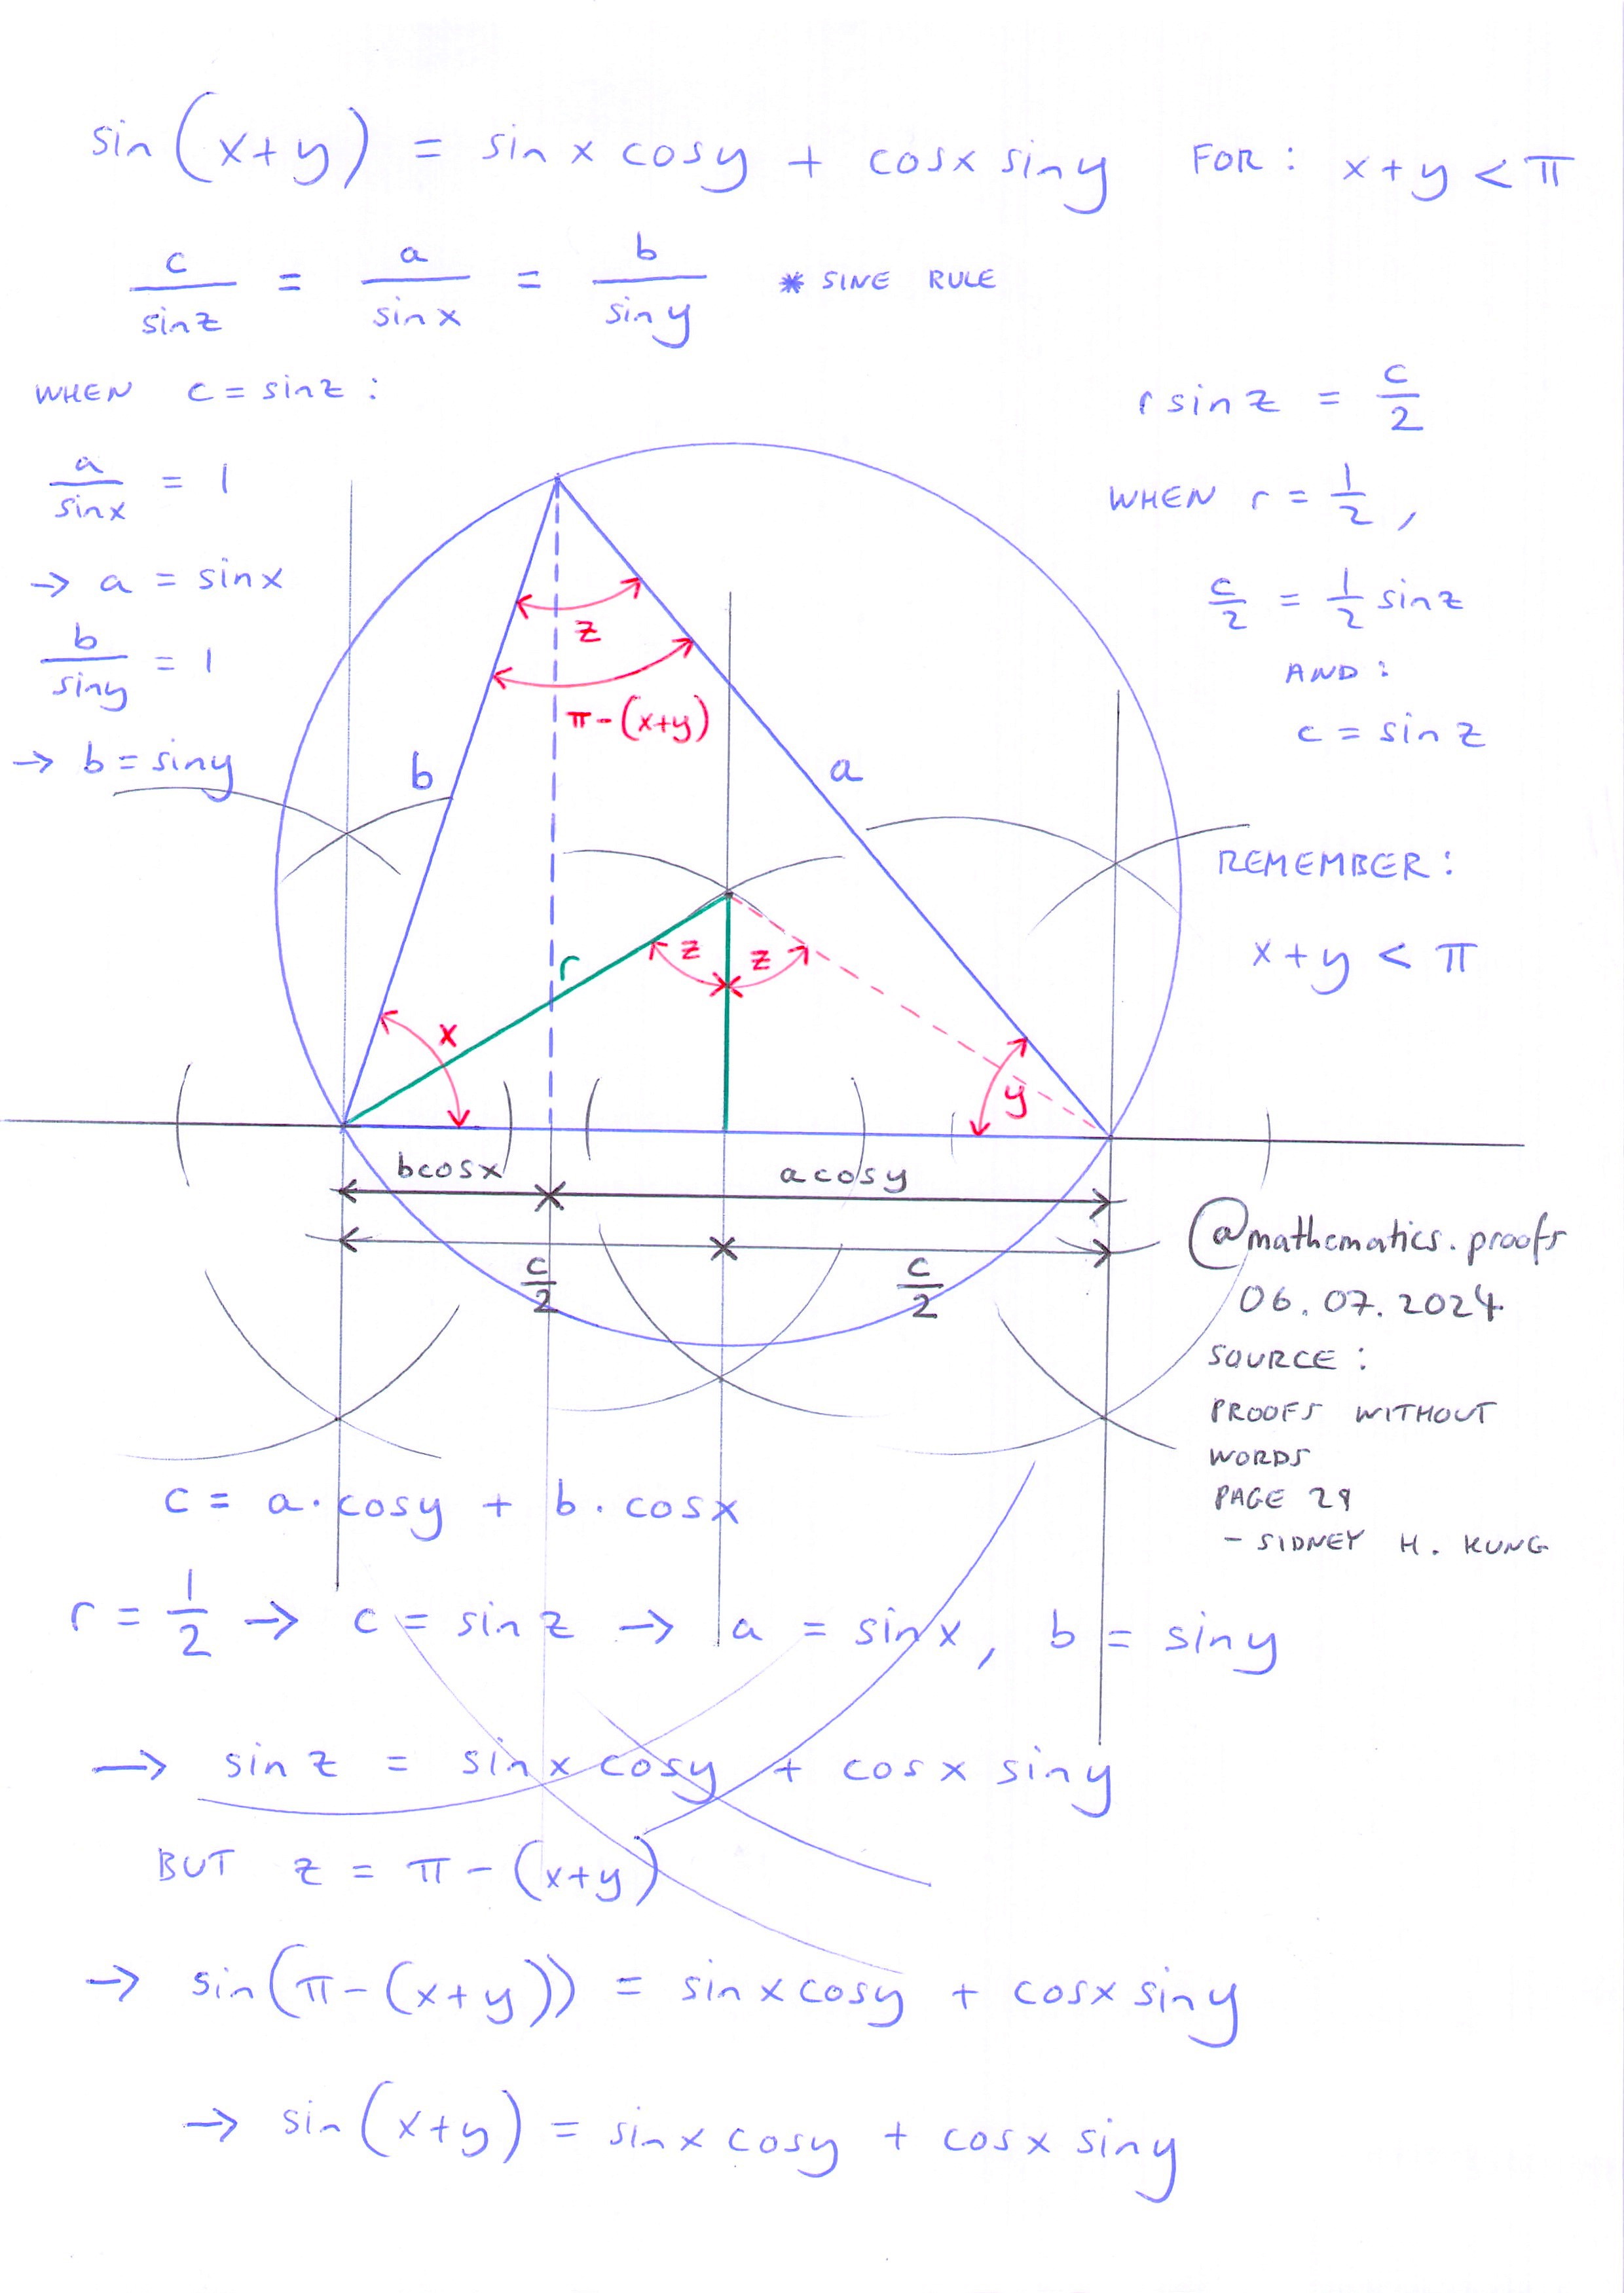 sin(x+y) = sinx cosy + cosx siny FOR: x+y < π
c/sinz = a/sinx = b/siny * SINE RULE
WHEN c = sinz:
a/sinx = 1
→ a = sinx
b/siny = 1
→ b = siny
r sinz = c/2
WHEN r = 1/2,
c/2 = 1/2 sinz
AND:
c = sinz
REMEMBER:
x+y < π
z
π-(x+y)
b
a
r
z
z
x
y
bcosx
acosy
c/2
c/2
@mathematics.proofs
06.07.2024
SOURCE:
PROOFS WITHOUT
WORDS
PAGE 29
- SIDNEY H. KUNG
c = a·cosy + b·cosx
r = 1/2 → c = sinz → a = sinx, b = siny
→ sinz = sinx cosy + cosx siny
BUT z = π-(x+y)
→ sin(π-(x+y)) = sinx cosy + cosx siny
→ sin(x+y) = sinx cosy + cosx siny